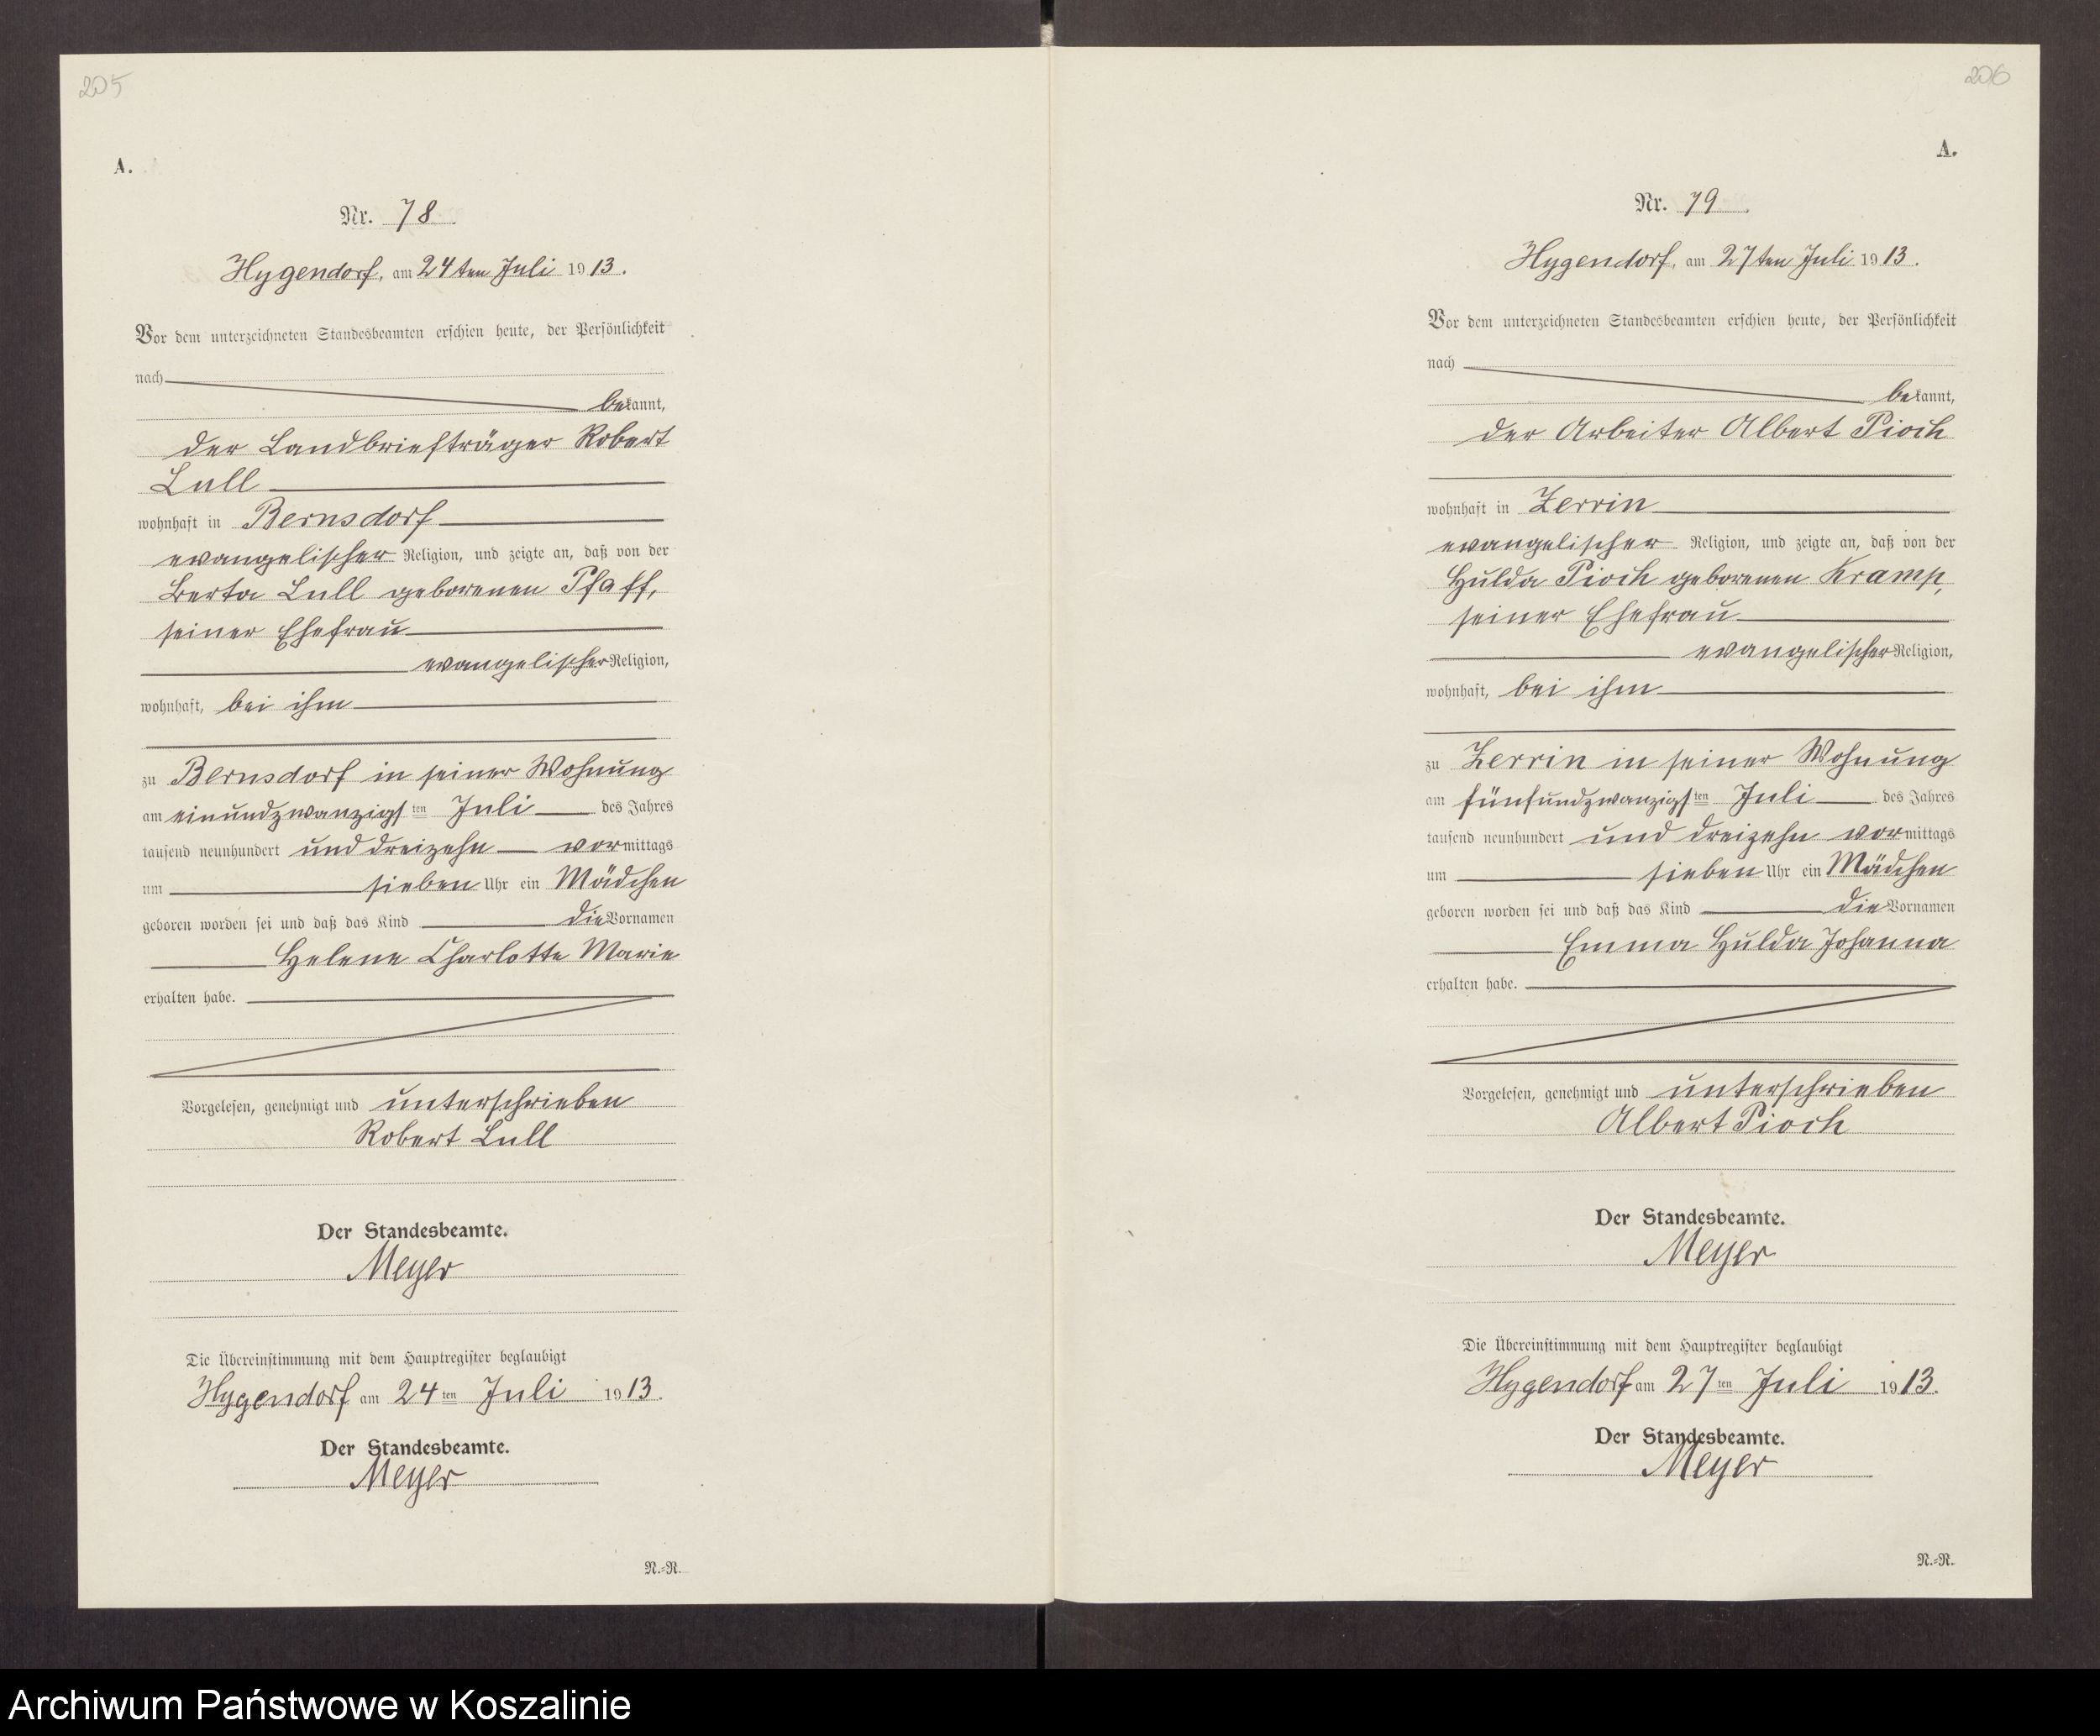 205
A.
Nr. 78
Hygendorf, am 24ten Juli 1913.
Vor dem unterzeichneten Standesbeamten erschien heute, der Persönlichkeit
nach
bekannt,
der Landbriefträger Robert
Lull
wohnhaft in Bernsdorf
evangelischer Religion, und zeigte an, daß von der
Berta Lull geborenen Pfaff,
seiner Ehefrau
evangelischer Religion,
wohnhaft, bei ihm
zu Bernsdorf in seiner Wohnung
am einundzwanzigsten Juli des Jahres
tausend neunhundert und dreizehn vormittags
um sieben Uhr ein Mädchen
geboren worden sei und daß das Kind die Vornamen
Helene Charlotte Marie
erhalten habe.
Vorgelesen, genehmigt und unterschrieben
Robert Lull
Der Standesbeamte.
Meyer
Die Übereinstimmung mit dem Hauptregister beglaubigt
Hygendorf am 24ten Juli 1913.
Der Standesbeamte.
Meyer
N.=R.
206
A.
Nr. 79
Hygendorf, am 27ten Juli 1913.
Vor dem unterzeichneten Standesbeamten erschien heute, der Persönlichkeit
nach
bekannt,
der Arbeiter Albert Pioch
wohnhaft in Zerrin
evangelischer Religion, und zeigte an, daß von der
Hulda Pioch geborenen Kramp,
seiner Ehefrau
evangelischer Religion,
wohnhaft, bei ihm
zu Zerrin in seiner Wohnung
am fünfundzwanzigsten Juli des Jahres
tausend neunhundert und dreizehn vormittags
um sieben Uhr ein Mädchen
geboren worden sei und daß das Kind die Vornamen
Emma Hulda Johanna
erhalten habe.
Vorgelesen, genehmigt und unterschrieben
Albert Pioch
Der Standesbeamte.
Meyer
Die Übereinstimmung mit dem Hauptregister beglaubigt
Hygendorf am 27ten Juli 1913.
Der Standesbeamte.
Meyer
N.=R.
Archiwum Państwowe w Koszalinie